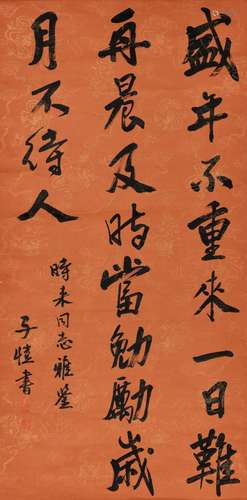 盛年不重來一日難
再晨及時當勉勵歲
月不待人
時來同志雅鑒
子愷書